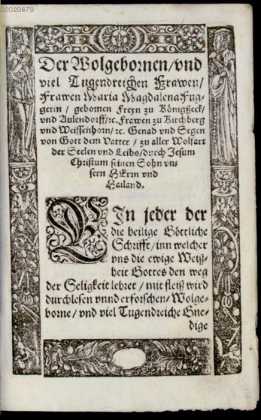 0020879
Der Wolgebornen/ vnd
viel Tugendreichen Frawen/
Frawen Maria Magdalena Fug-
gerin / gebornen Freyn zu Königseck/
vnd Aulendorff/ ꝛc. Frawen zu Kirchberg
vnd Weissenhorn/ ꝛc. Genad vnd Segen
von Gott dem Vatter / zu aller Wolfart
der Seelen vnd Leibs/ durch Jesum
Christum seinen Sohn vn-
sern Herrn vnd
Heiland.
EIn jeder der
die heilige Göttliche
Schrifft/ inn welcher
vns die ewige Weiß-
heit Gottes den weg
der Seligkeit lehret / mit fleiß wird
durchlesen vnnd erforschen/ Wolge-
borne/ vnd viel Tugendreiche Gne-
dige